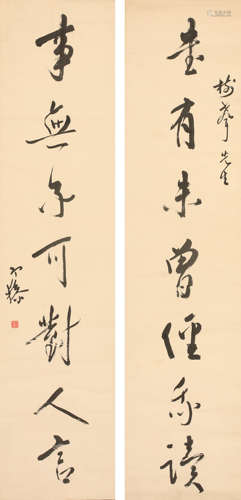 樹峯先生
書有未曾經我讀
事無不可對人言